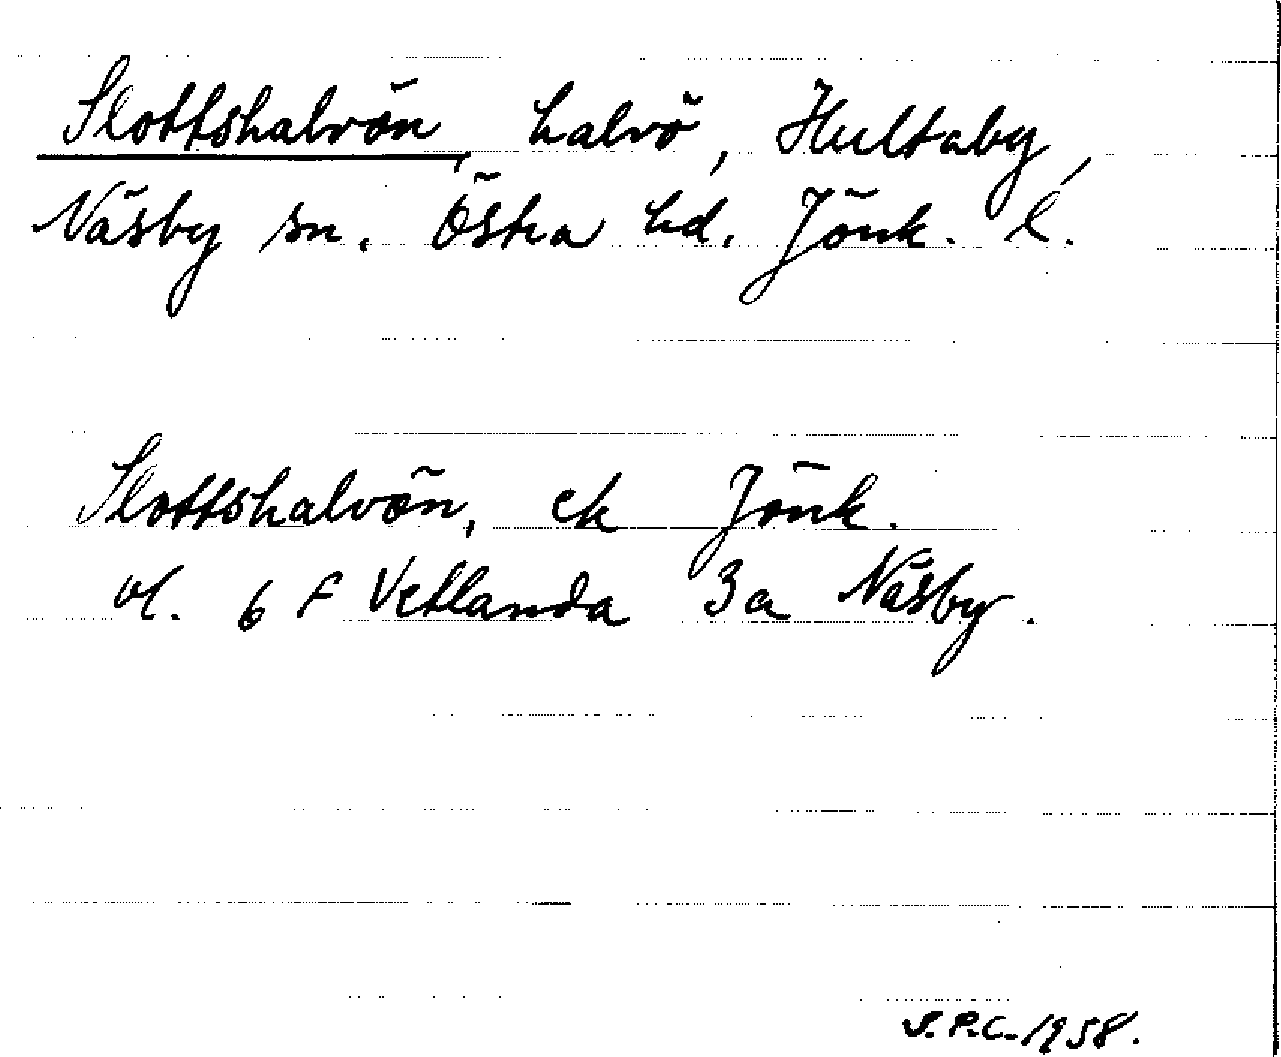 Slottshalvön, halvö, Hultaby,
Näsby sn. Östra hd. Jönk. l.
Slottshalvön, ek Jönk.
bl. 6 F Vetlanda 3a Näsby.
S.P.C. 1958.